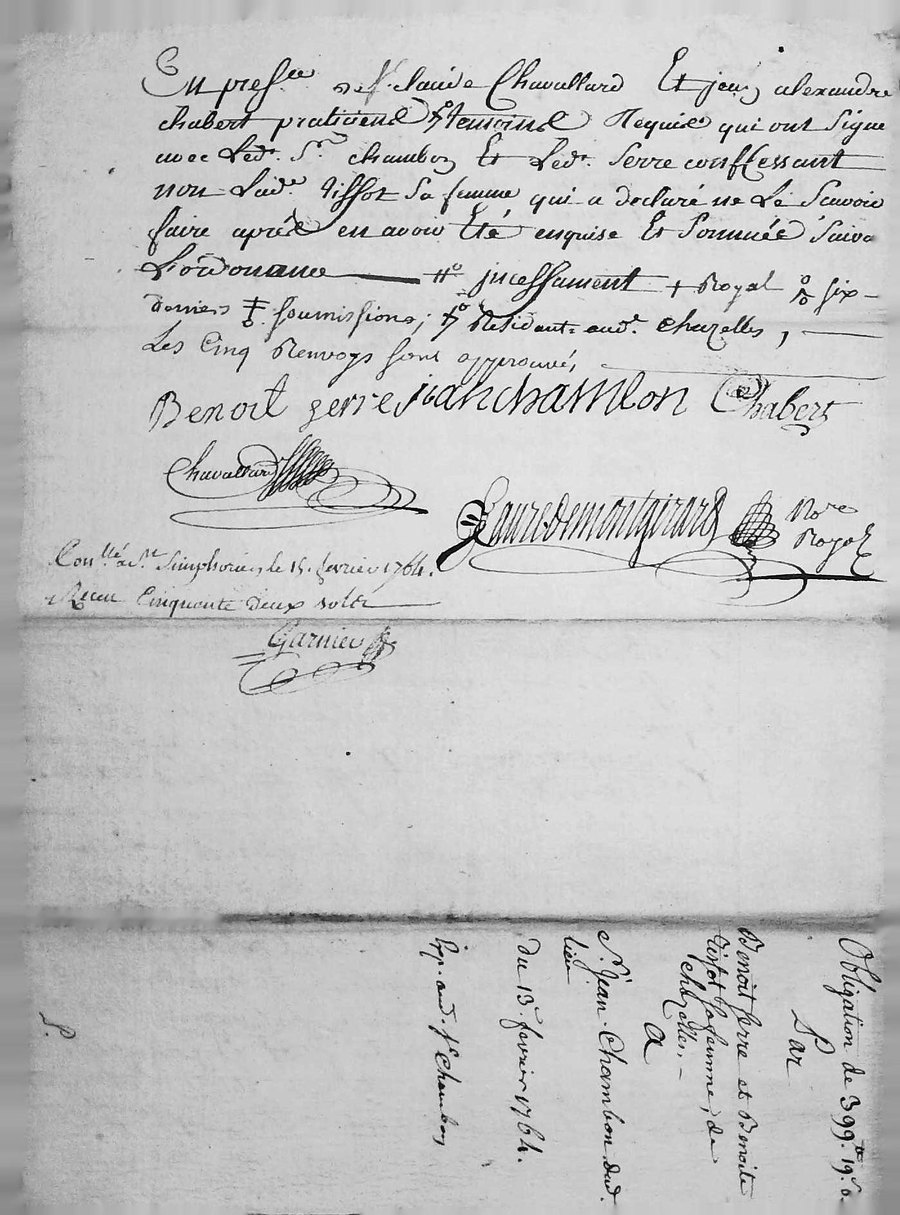 En pres.ce de S.r claude Chavallard Et jean alexandre
chabert praticiens temoins Requis qui ont signe
avec Led.t S.r chambon Et Led.t serre conffessant
non Lad.e tissot sa femme qui a declaré ne Le scavoir
faire aprés en avoir Eté enquise Et sommée suiv.
L'ordonance jncessament + Royal six
deniers soumissions; Residants aud.t chazelles,
Les Cinq Renvoys sont approuvés
Benoit serre jean chambon Chabert
Chavallard
Faure demontgirard No.re
Royal
Con.llé a S.t Simphorien le 15. fevrier 1764.
Receu Cinquante deux sols
Garnier
Obligation de 399.tt 19.s 6.
Par
Benoit serre et Benoite
tissot sa femme, de
Chazelles,
A
S.r Jean Chambon dud.
lieu
du 13.e fevrier 1764.
Exp. aud. S.r Chambon